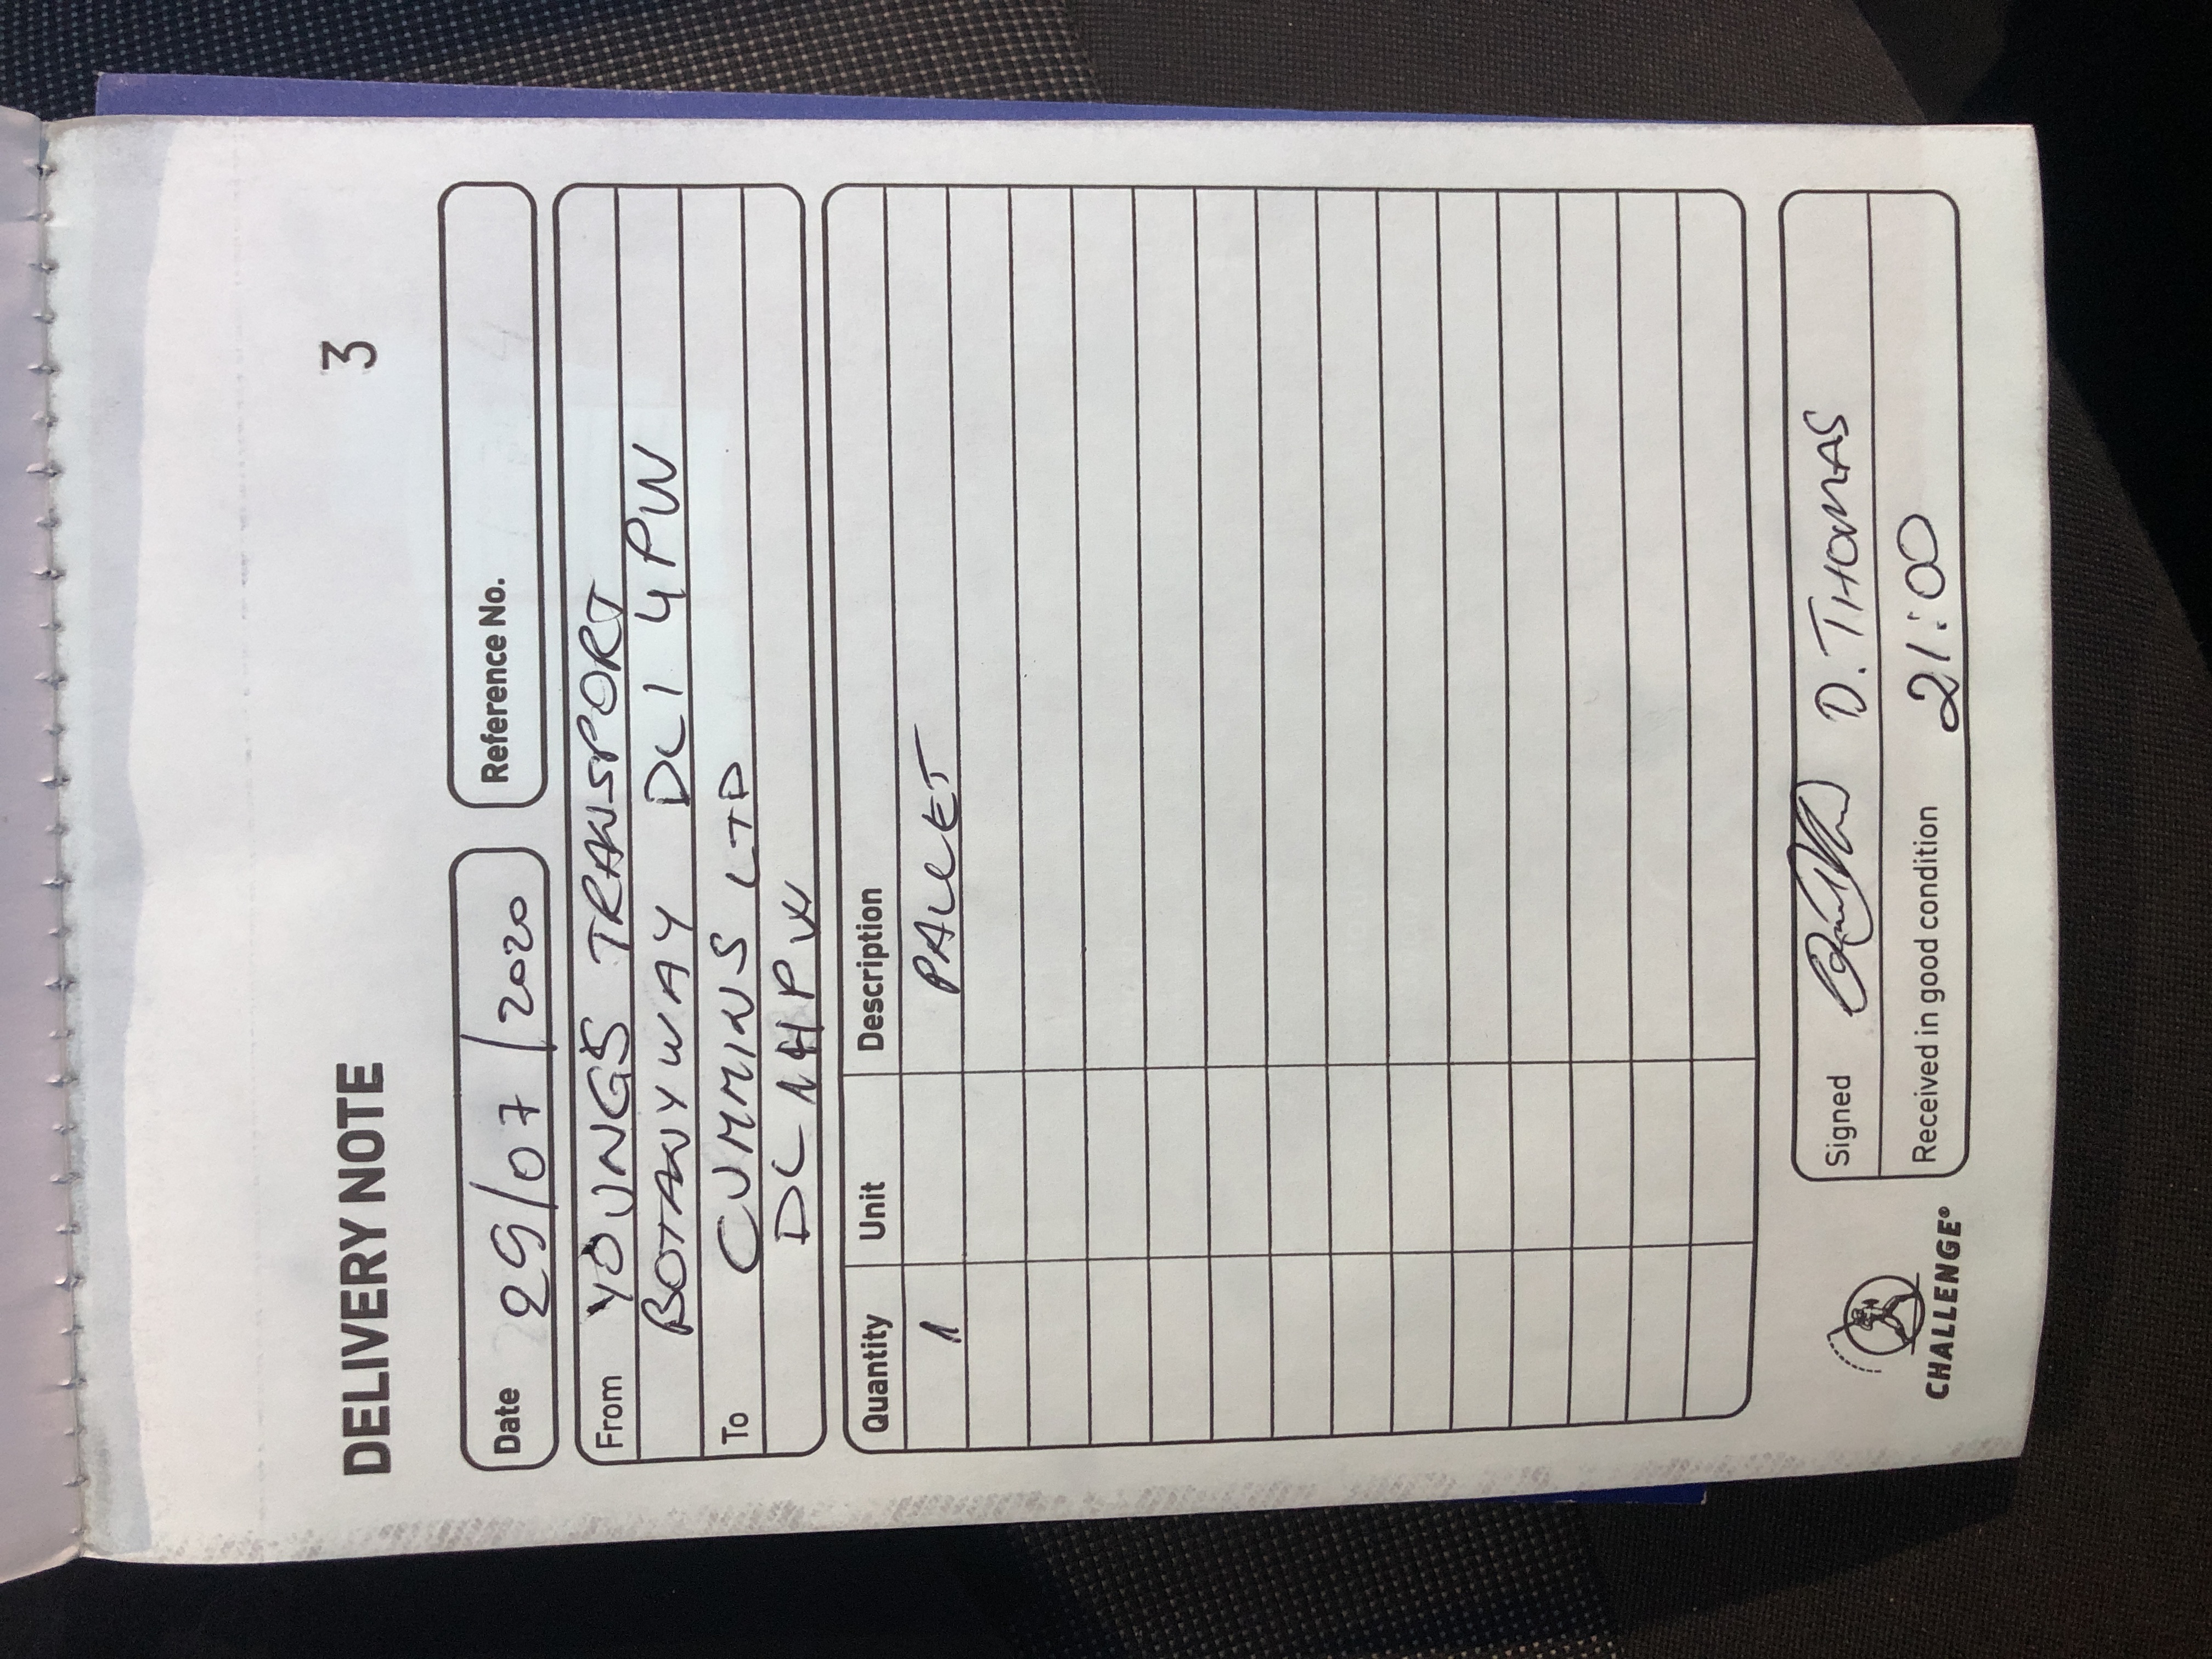 DELIVERY NOTE 3
Date 29/07/2020 Reference No.
From YOUNGS TRANSPORT
BOTANYWAY DL1 4PW
To CUMMINS LTD
DL 1 4PW
Quantity Unit Description
1 PALLET
Signed D. THOMAS
Received in good condition 21:00
CHALLENGE®